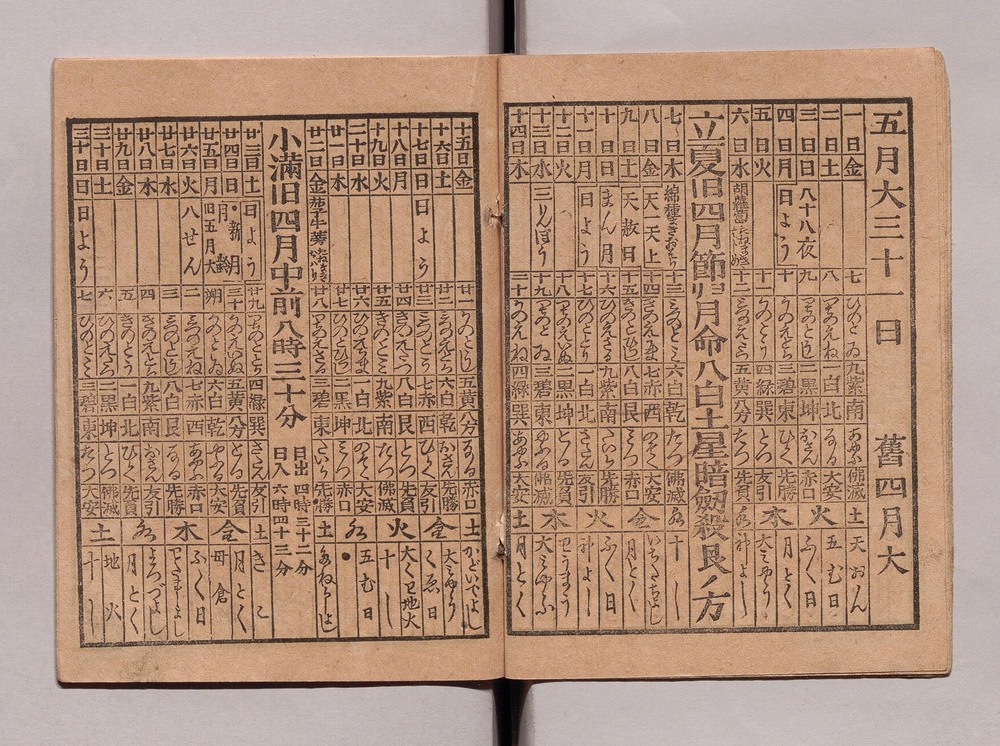 五月大三十一日 舊四月大
一日金 七 ひのとゐ 九紫 南 あやぶ 佛滅 土 天おん
二日土 八 つちのえね 一白 北 なる 大安 五む日
三日日 八十八夜 九 つちのとうし 二黒 坤 おさん 赤口 火 ふく日
四日月 日よう 十 かのえとら 三碧 東 ひらく 先勝 月とく
五日火 十一 かのとう 四緑 巽 とづ 友引 木 大みやう
六日水 胡蘿蔔 十二 みづのえたつ 五黄 八分 たつ 先負 水 神よし
立夏旧四月節卯月命八白土星暗劔殺艮ノ方
七日木 綿種まきおわる 十三 みづのとみ 六白 乾 たつ 佛滅 水 十し
八日金 天一天上 十四 きのえうま 七赤 西 のぞく 大安 いちりうまんよし
九日土 天赦日 十五 きのとひつじ 八白 艮 みつ 赤口 金 月とく
十日日 まん月 十六 ひのえさる 九紫 南 たいら 先勝 ふく日
十一日月 日よう 十七 ひのととり 一白 北 さだん 友引 火 神よし
十二日火 十八 つちのえいぬ 二黒 坤 とる 先負
十三日水 三りんぼう 十九 つちのとゐ 三碧 東 やぶる 佛滅 木 大みやう
十四日木 二十 かのえね 四緑 巽 あやぶ 大安 土 月とく
十五日金 廿一 かのとうし 五黄 八分 なる 赤口 かどいでよし
十六日土 廿二 みづのえとら 六白 乾 おさん 先勝 金 大みやう
十七日日 日よう 廿三 みづのとう 七赤 西 ひらく 友引 くゑ日
十八日月 廿四 きのえたつ 八白 艮 とづ 先負 火 地火
十九日火 廿五 きのとみ 九紫 南 たつ 佛滅 十し
二十日水 廿六 ひのえうま 一白 北 のぞく 大安 五む日
廿一日木 廿七 ひのとひつじ 二黒 坤 みつ 赤口 水 ●
廿二日金 茄子牛蒡 廿八 つちのえさる 三碧 東 たいら 先勝 土 たねかしよし
小滿旧四月中前八時三十分 日出 四時三十二分 日入 六時四十三分
廿三日土 日よう 廿九 つちのととり 四緑 巽 さだん 友引 土 きこ
廿四日日 ●新月 月齢 三十 かのえいぬ 五黄 八分 とる 先負 月とく
廿五日月 旧五月大 朔 かのとゐ 六白 乾 やぶる 大安 金 母倉
廿六日火 八せん 二 みづのえね 七赤 西 あやぶ 赤口 ふく日
廿七日水 三 みづのとうし 八白 艮 なる 先勝 木
廿八日木 四 きのえとら 九紫 南 おさん 友引 よろづよし
廿九日金 五 きのとう 一白 北 ひらく 先負 水 月とく
三十日土 六 ひのえたつ 二黒 坤 とづ 佛滅 地火
三十日日 日よう 七 ひのとみ 三碧 東 たつ 大安 土 十し